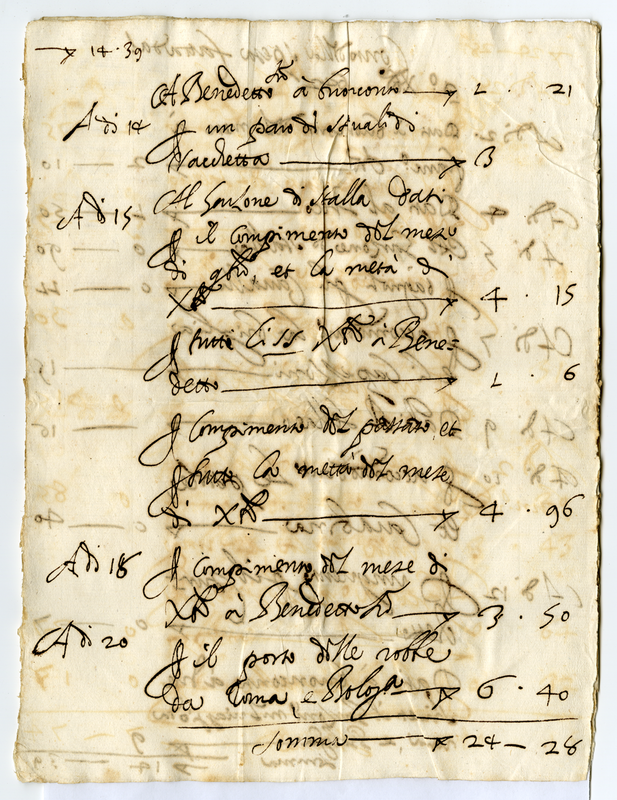 14 · 39
A Benedetto à buonconto 1 · 21
Adi 14 un paio di stivali di
Vacchetta 3
Adi 15 Al Garzone di stalla dati
il Compimento del mese
di 9bre, et la metà di
Xbre 4 · 15
tutti Xbre à Bene=
detto 1 · 6
Compimento del passato et
tutto la mettà del mese
di Xbre 4 · 96
Adi 18 Compimento del mese di
Xbre à Benedetto 3 · 50
Adi 20 il porto delle robbe
da Roma, e Bologa 6 · 40
Somma 24 — 28